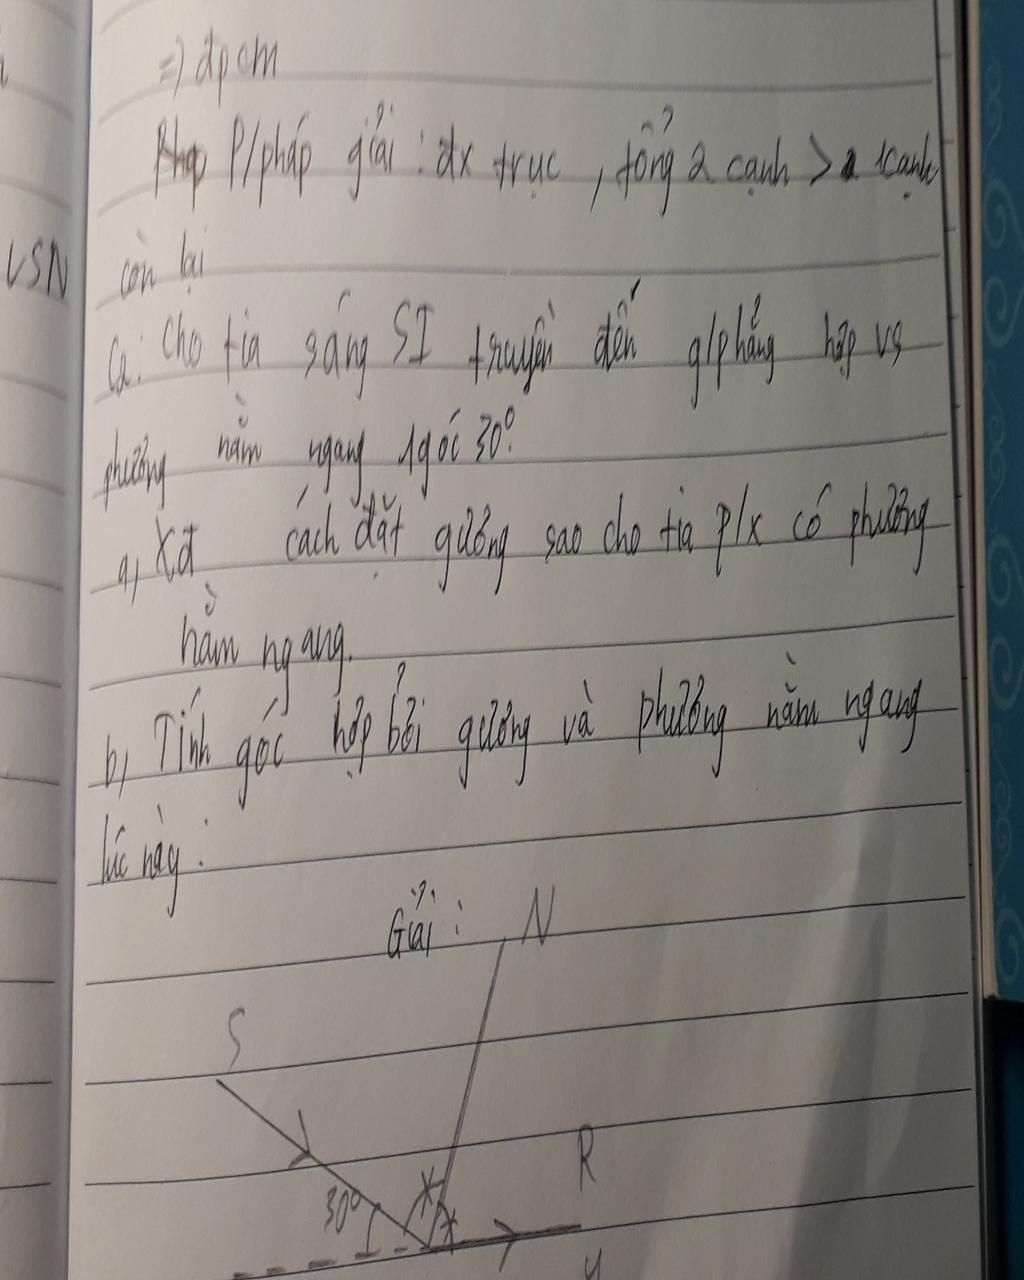 =) đpcm
P/pháp giải : đx trục , tổng 2 cạnh > 1 cạnh
còn lại
VSN
C2: Cho tia sáng SI truyền đến g/phẳng hợp vs
phương nằm ngang 1 góc 30°.
a, Xđ cách đặt gương sao cho tia p/x có phương
nằm ngang.
b, Tính góc hợp bởi gương và phương nằm ngang
lúc này :
Giải :
N
S
R
30°